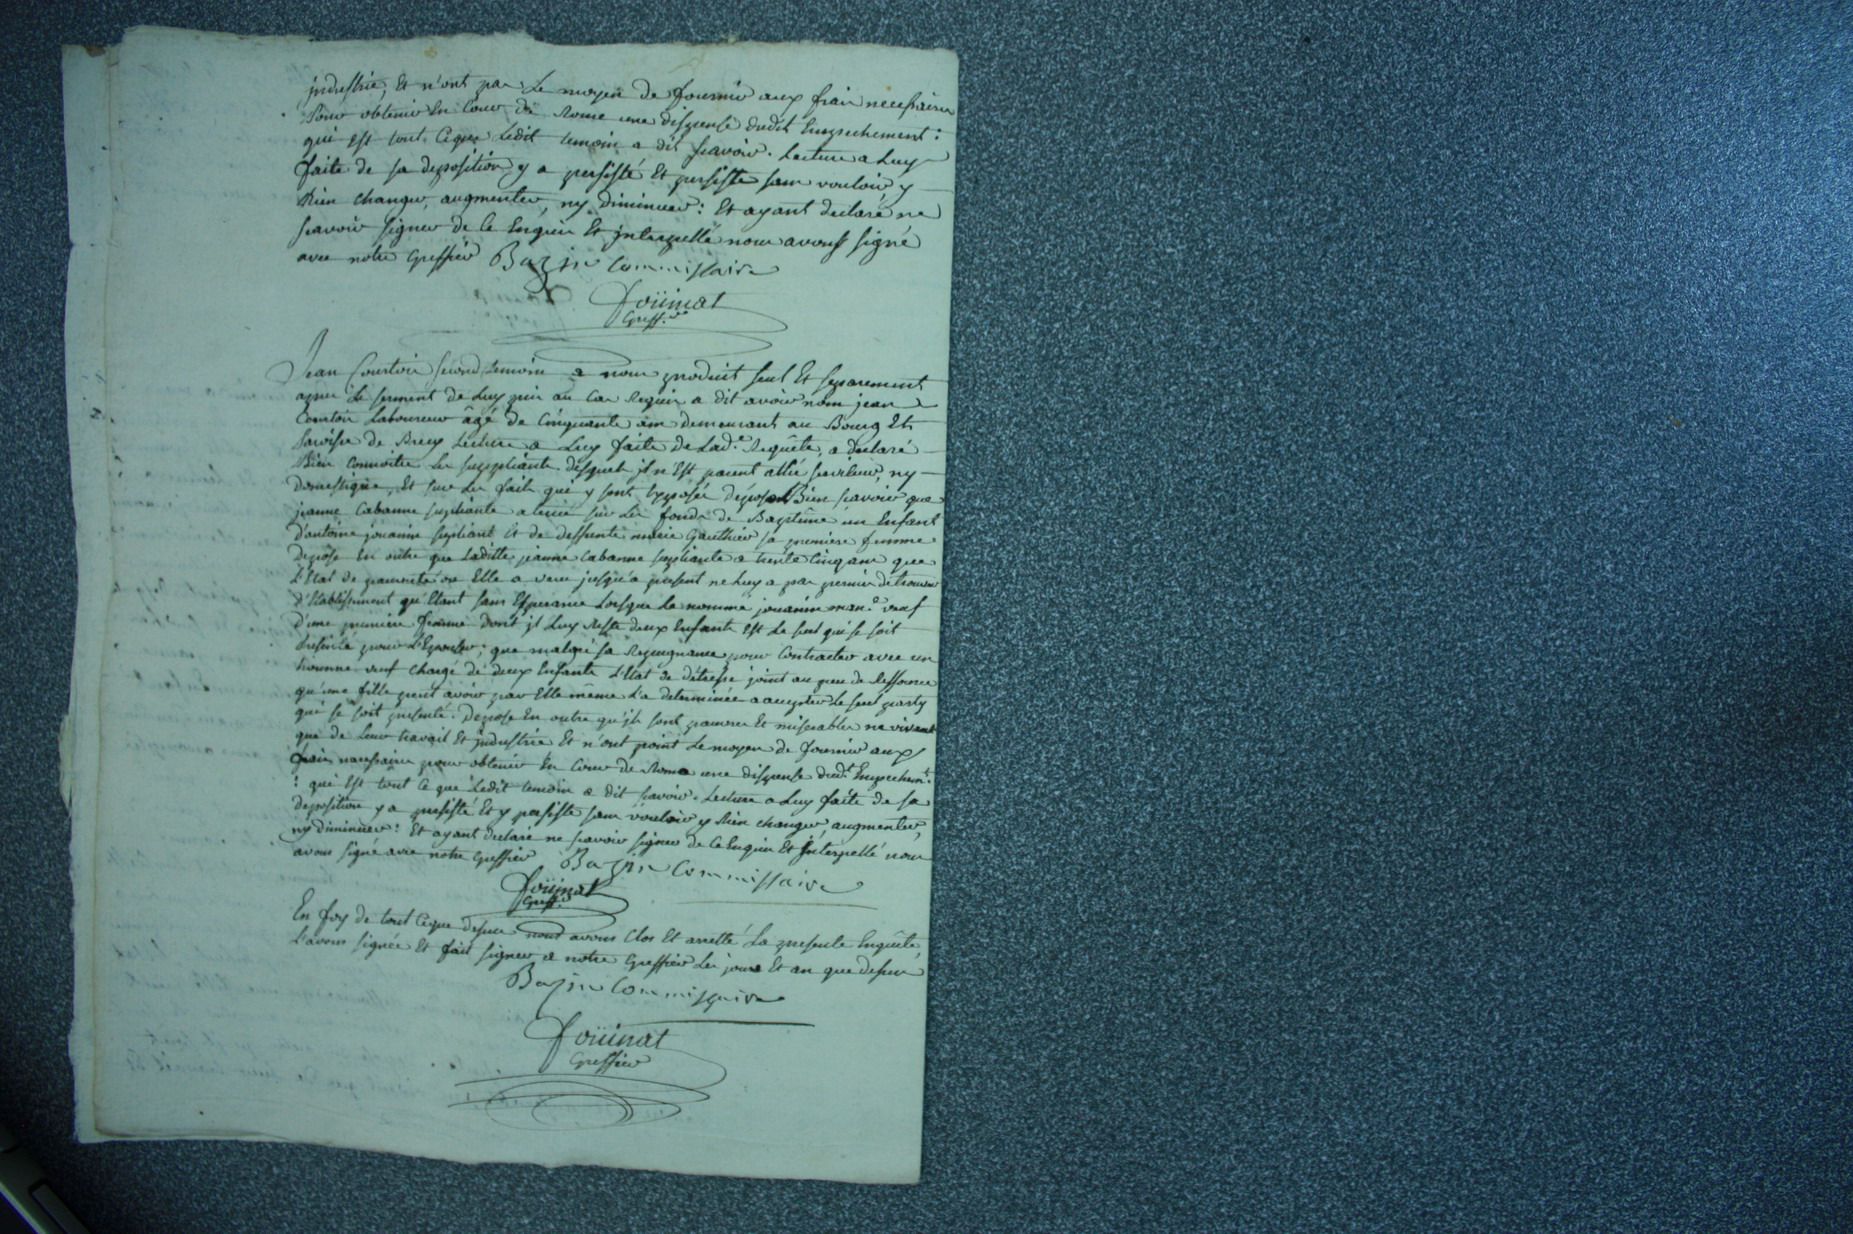 jndustrie, Et n'ont pas Le moyen de fournir aux frais necessaires
Pour obtenir En Cour de Rome une dispense dudit Empechement:
qui Est tout Ceque Ledit temoin a dit scavoir. Lecture a Luy
faite de sa deposition y a persisté Et persiste sans vouloir y
Rien changer, augmenter, ny diminuer: Et ayant declaré ne
scavoir signer de Ce Enquis Et jnterpellé nous avons signé
avec notre Greffier Bazin Commissaire
foüinat
Greff.er
Jean Courtois second temoin a nous produit seul Et separement
apres Le serment de Luy pris au Cas Requis a dit avoir nom jean
Courtois Laboureur âgé de Cinquante ans demeurant au Bourg Et
Paroisse de Lecture a Luy faite de Lad.e Requête, a declaré
Bien Connoitre Les suppliants desquels jl n'Est parent allié serviteur, ny
domestique, Et sur Les faits qui y sont Exposés depose Bien scavoir que
jeanne Cabanne supliante a tenue sur Les fonds de Baptême un Enfant
d'antoine jouanin supliant Et de deffunte marie Gauthier sa premiere femme
depose En outre que Laditte jeanne Cabanne supliante a trente Cinq ans que
L'Etat de pauvreté ou Elle a vecu jusqu'a present ne Luy a pas permis de trouver
d'Etablissement qu'Etant sans Esperance Lorsque Le nommé jouanin veuf
d'une premiere femme dont jl Luy Reste deux Enfants Est Le seul qui se soit
presenté pour L'Epouser; que malgré sa Repugnance pour Contracter avec un
homme veuf chargé de deux Enfants L'Etat de détresse joint au peu de Ressource
qu'une fille peut avoir par Elle même L'a determinée a accepter Le seul party
qui se soit presenté. Depose En outre qu'jls sont pauvres Et miserables ne vivant
que de Leur travail Et jndustrie Et n'ont point Le moyen de fournir aux
frais necessaires pour obtenir En Cour de Rome une dispense dud.t Empechem.t
: qui Est tout Ce que Ledit temoin a dit scavoir. Lecture a Luy faite de sa
deposition y a persisté Et y persiste sans vouloir y Rien changer augmenter,
ny diminuer: Et ayant declaré ne scavoir signer de Ce Enquis Et jnterpellé nous
avons signé avec notre Greffier Bazin Commissaire
foüinat
Greff.er
En foy de tout Ceque dessus nous avons Clos Et arretté La presente Enquête,
L'avons signée Et fait signer a notre Greffier Les jours Et an que dessus
Bazin Commissaire
foüinat
Greffier